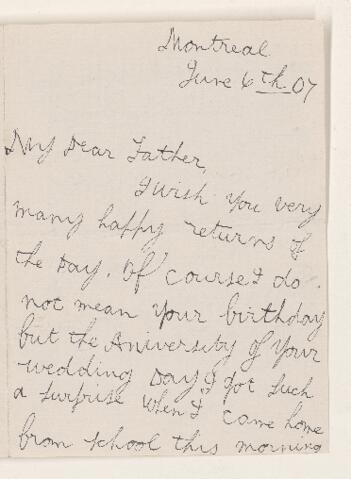 Montreal
June 6th 07
My Dear Father,
I wish you very
many happy returns of
the Day. Of course I do
not mean your birthday
but the Aniversity of your
wedding Day I got such
a surprise when I came home
from school this morning